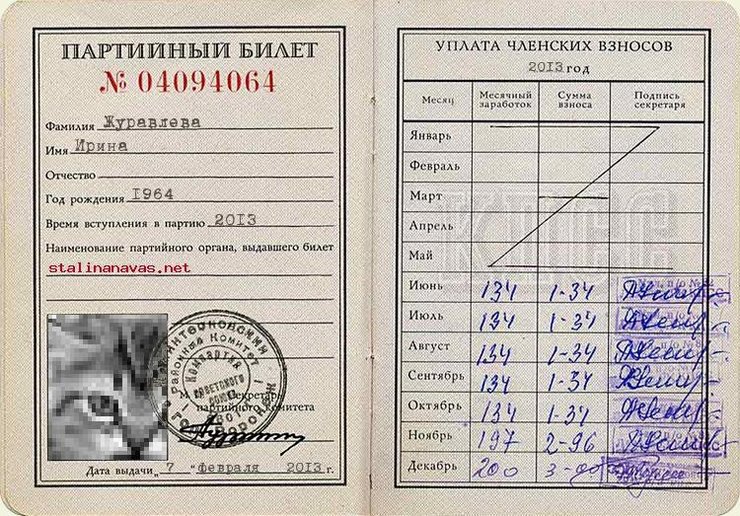 ПАРТИЙНЫЙ БИЛЕТ
№ 04094064
Фамилия Журавлева
Имя Ирина
Отчество
Год рождения 1964
Время вступления в партию 2013
Наименование партийного органа, выдавшего билет
stalinanavas.net
районный Комитет
Компартия
Советского
Союза
М
Секретарь
партийного комитета
Дата выдачи „7 февраля 2013 г.
УПЛАТА ЧЛЕНСКИХ ВЗНОСОВ
2013 год
Месяц Месячный заработок Сумма взноса Подпись секретаря
Январь
Февраль
Март
Апрель
Май
КПСС
Июнь 134 1-34
Июль 134 1-34
Август 134 1-34
Сентябрь 134 1-34
Октябрь 134 1-34
Ноябрь 197 2-96
Декабрь 200 3-00